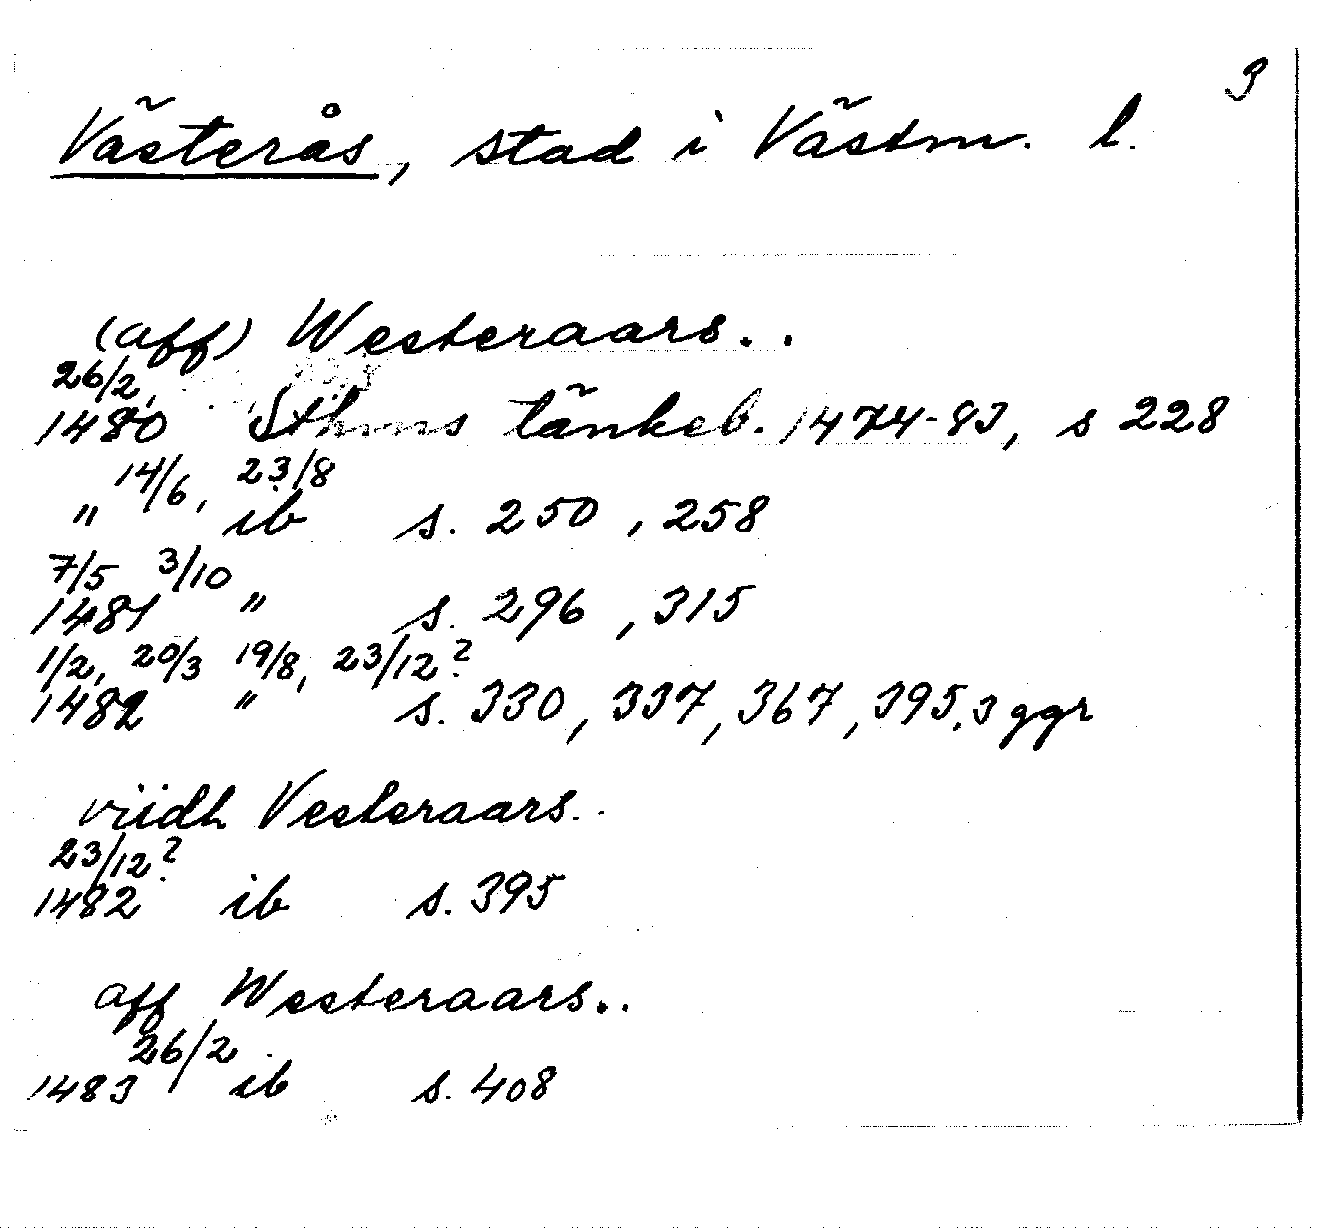 3
Västerås, stad i Västm. l.
(aff) Westeraars..
26/2,
1480 Sthms tänkeb. 1474-83, s 228
14/6, 23/8
" ib s. 250, 258
7/5 3/10
1481 " s. 296, 315
1/2, 20/3 19/8, 23/12?
1482 " s. 330, 337, 367, 395, 3 ggr
viidh Vesteraars..
23/12?
1482 ib s. 395
aff Westeraars..
26/2
1483 ib s. 408